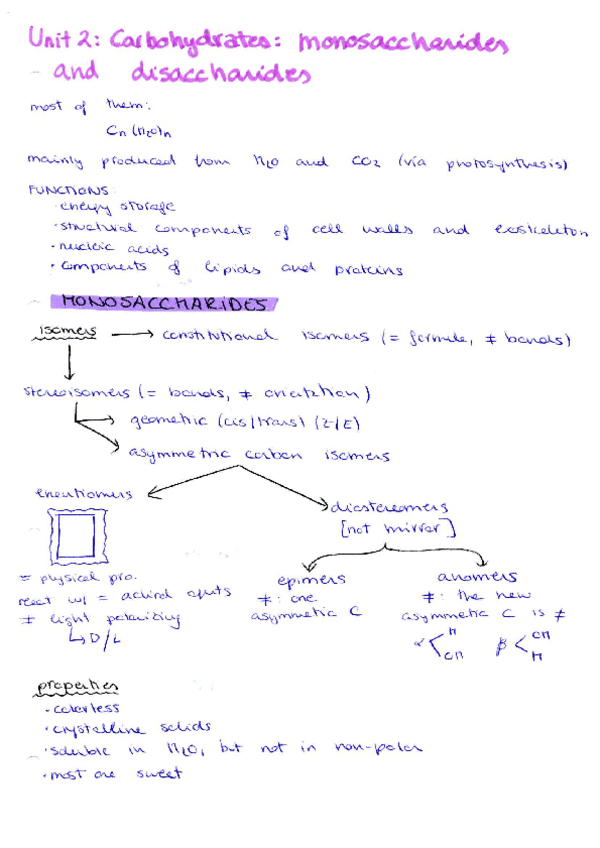 Unit 2: Carbohydrates: monosaccharides
and disaccharides
most of them:
Cn (H2O)n
mainly produced from H2O and CO2 (via photosynthesis)
FUNCTIONS
· energy storage
· structural components of cell walls and exoskeleton
· nucleic acids
· components of lipids and proteins
MONOSACCHARIDES
isomers → constitutional isomers (= formula, ≠ bonds)
stereoisomers (= bonds, ≠ orientation)
→ geometric (cis/trans) (Z/E)
→ asymmetric carbon isomers
enantiomers
diastereomers
[not mirror]
= physical pro.
react w/ = achiral
≠ light polarizing
↳ D/L
epimers
≠: one
asymmetric C
anomers
≠: the new
asymmetric C is ≠
α < H OH β < OH H
properties
· colorless
· crystalline solids
· soluble in H2O, but not in non-polar
· most are sweet